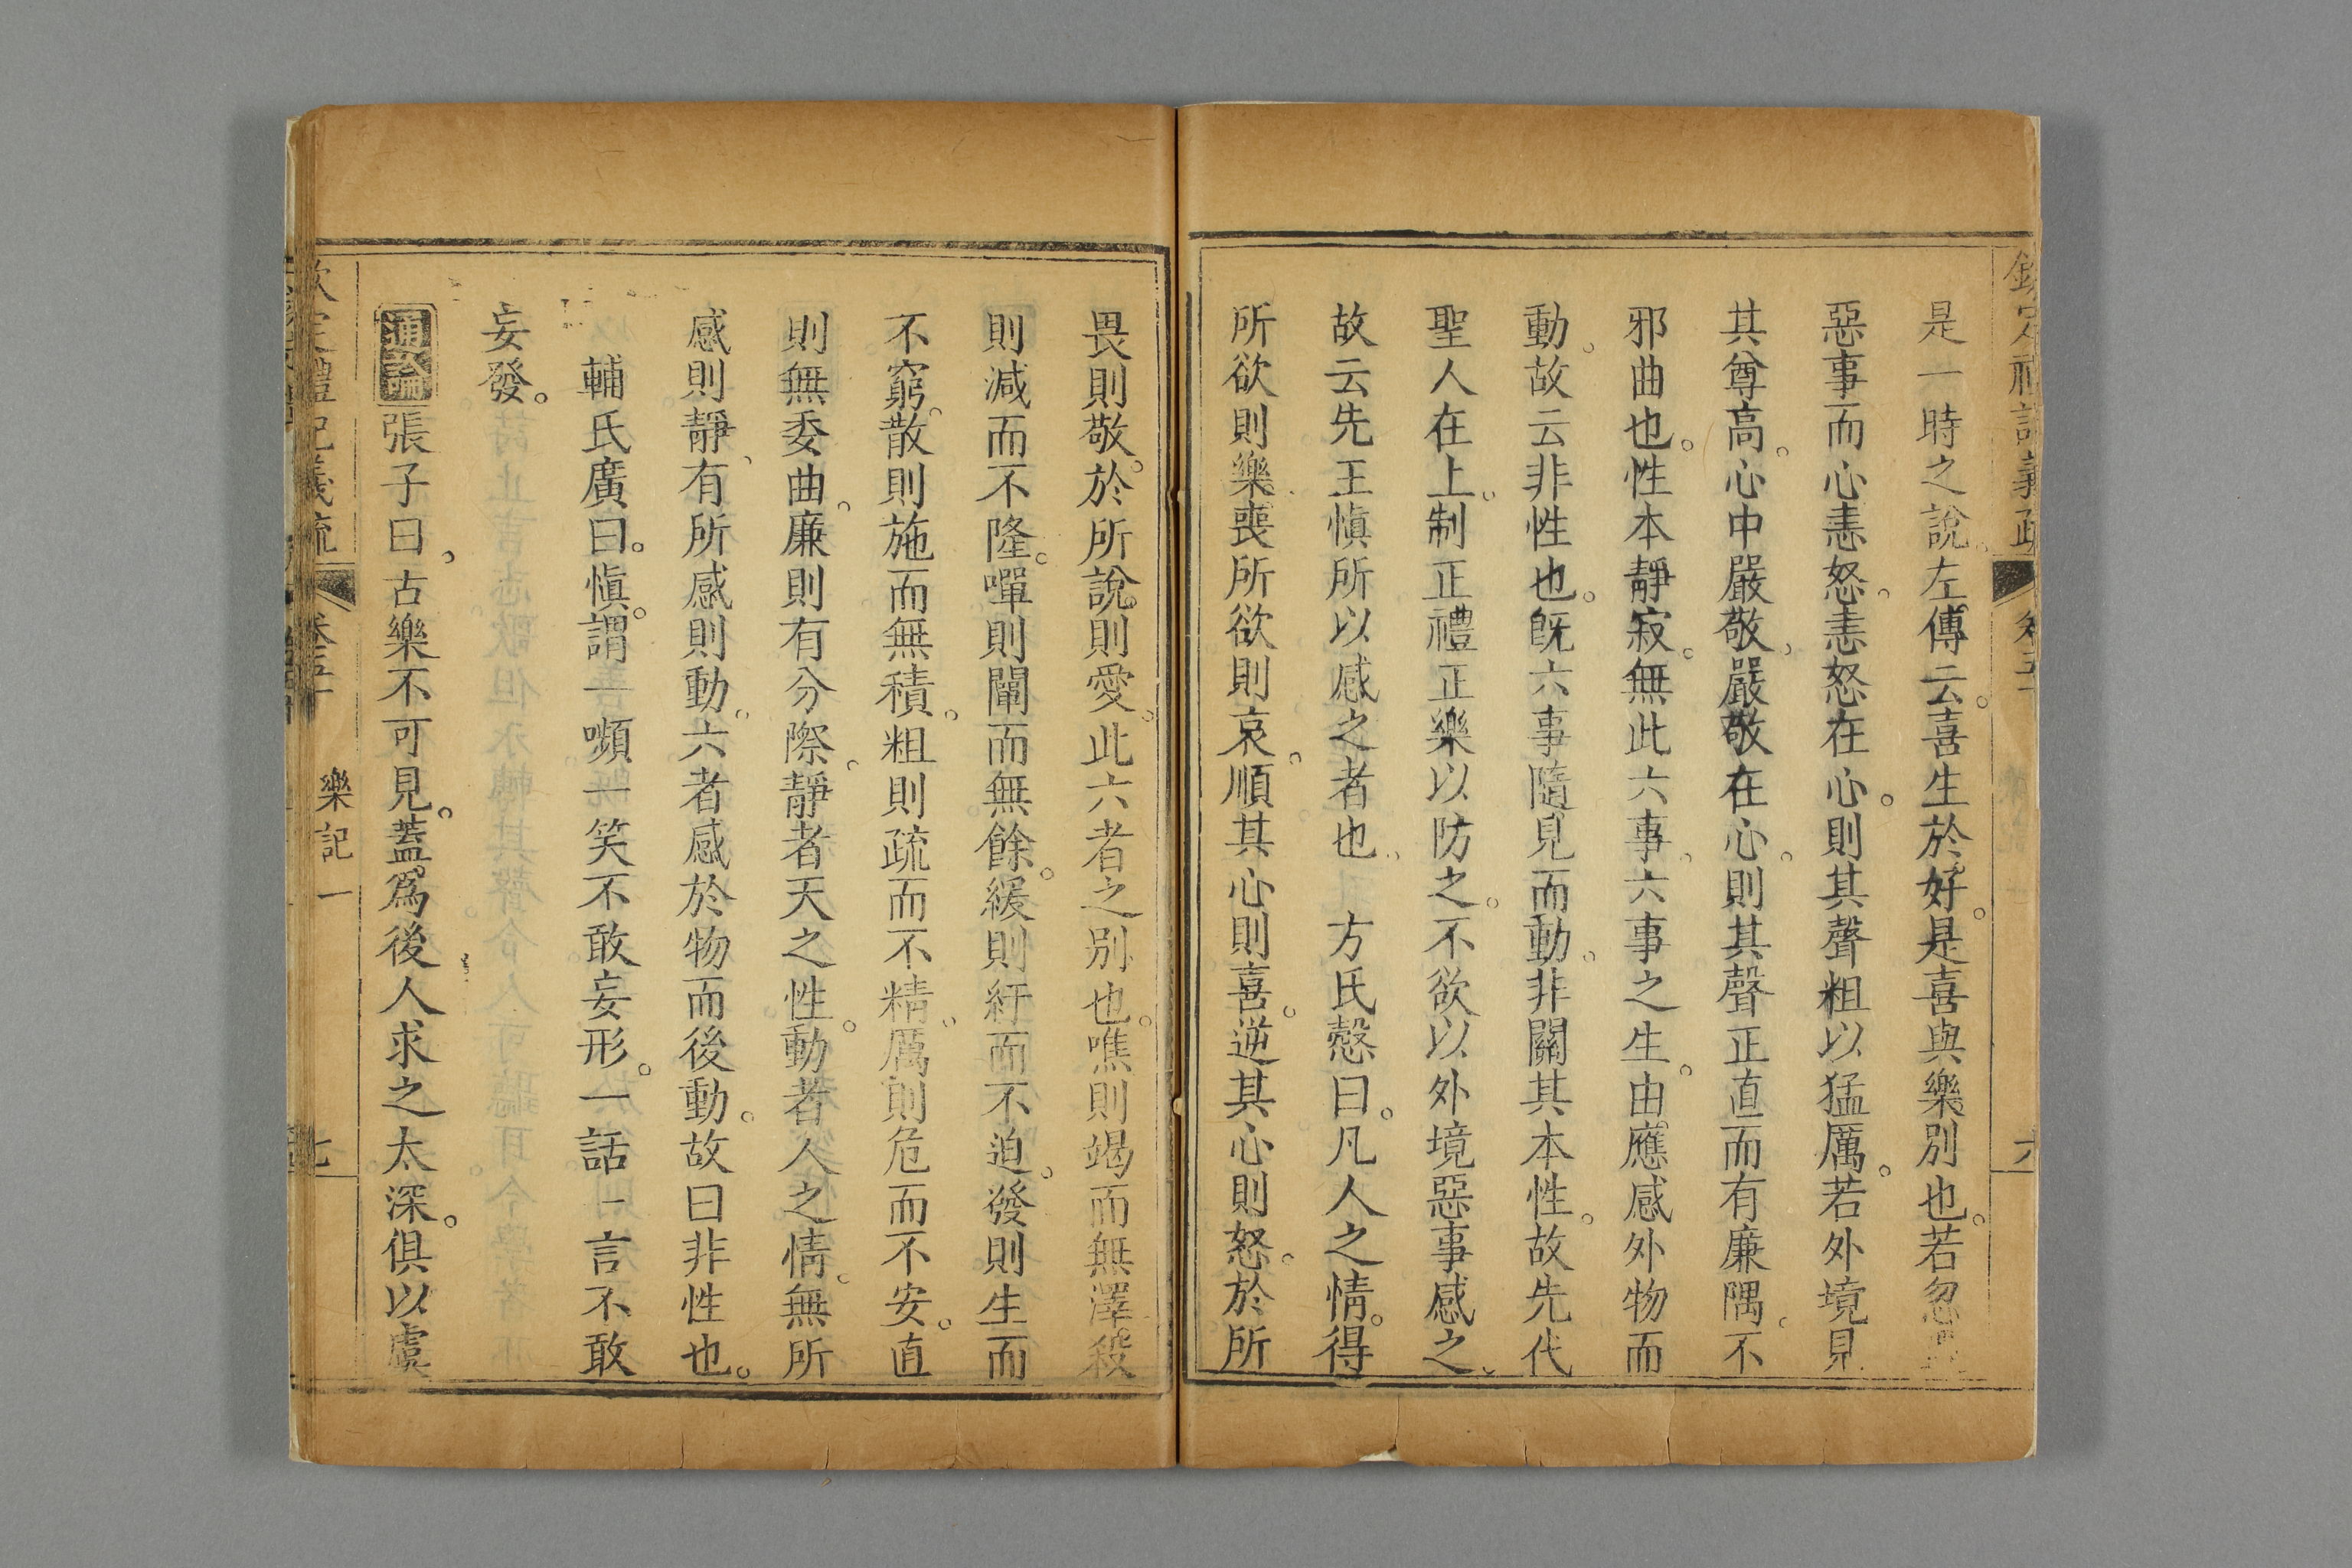 是一時之說左傳云喜生於好是喜與樂別也若忽
惡事而心恚怒恚怒在心則其聲粗以猛厲若外境見
其尊高心中嚴敬嚴敬在心則其聲正直而有廉隅不
邪曲也性本靜寂無此六事六事之生由應感外物而
動故云非性也旣六事隨見而動非關其本性故先代
聖人在上制正禮正樂以防之不欲以外境惡事感之
故云先王愼所以感之者也 方氏慤曰凡人之情得
所欲則樂喪所欲則哀順其心則喜逆其心則怒於所
畏則敬於所說則愛此六者之別也噍則竭而無澤殺
則減而不隆嘽則闡而無餘緩則紓而不迫發則生而
不窮散則施而無積粗則疏而不精厲則危而不安直
則無委曲廉則有分際靜者天之性動者人之情無所
感則靜有所感則動六者感於物而後動故曰非性也
輔氏廣曰愼謂一嚬一笑不敢妄形一話一言不敢
妄發
通論張子曰古樂不可見蓋爲後人求之太深俱以虞
定禮記義疏 卷五十 樂記一 七